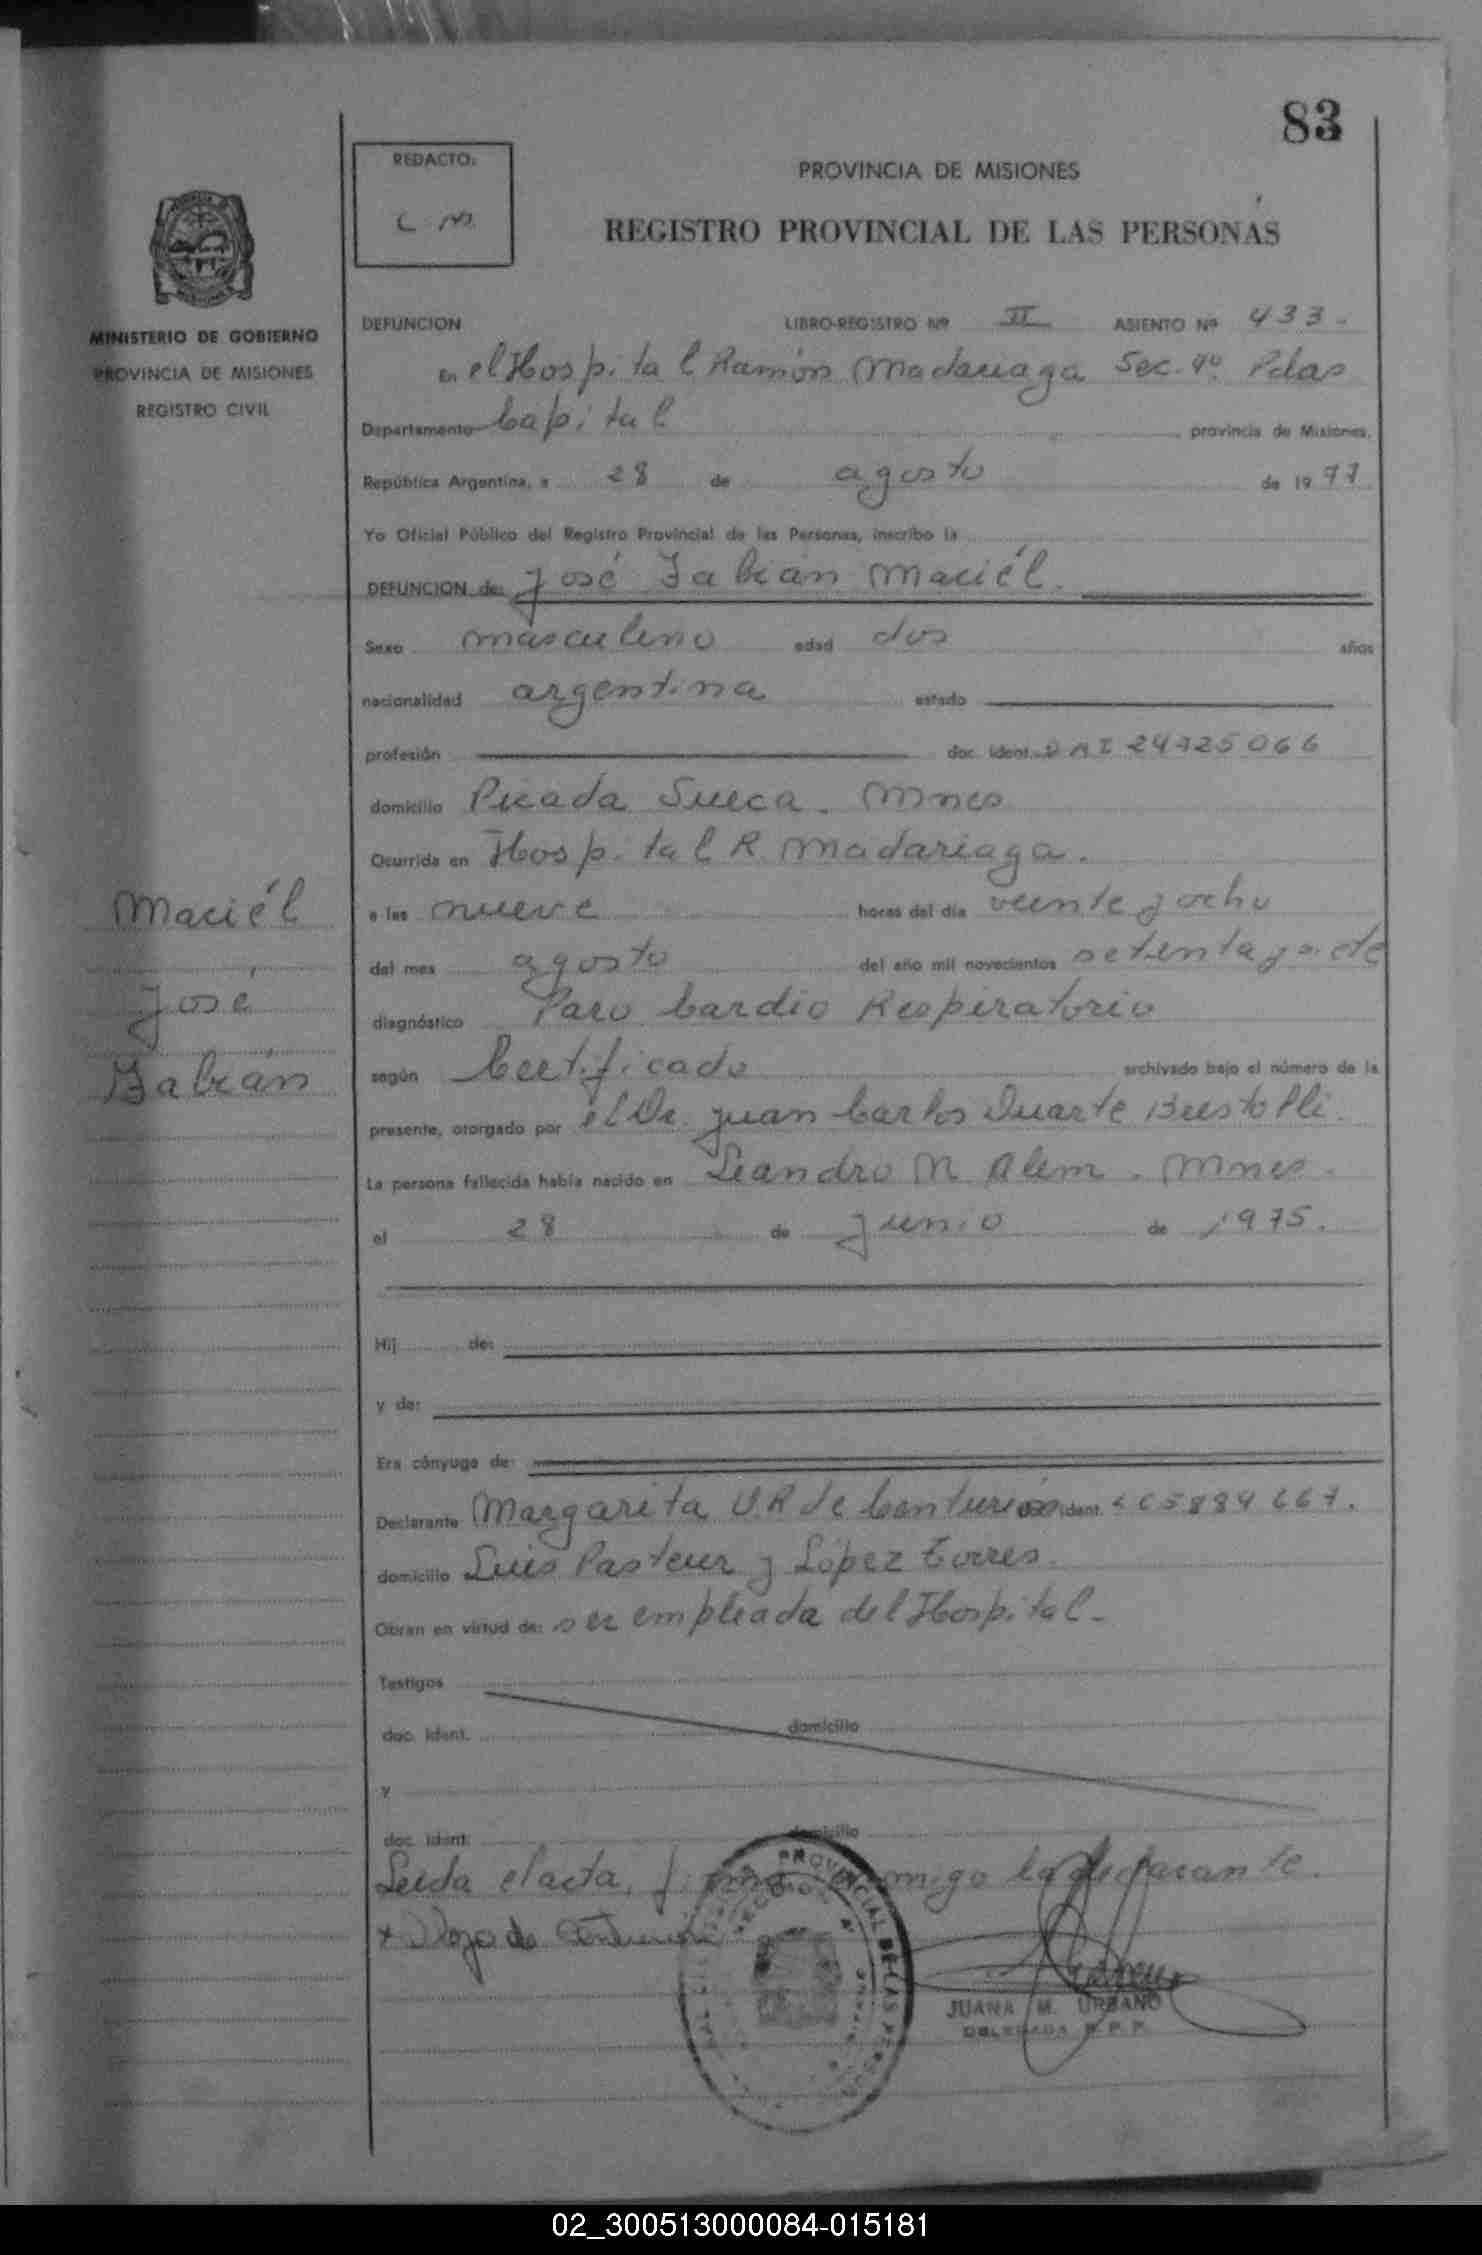 83
REDACTO:
C M.
PROVINCIA DE MISIONES
REGISTRO PROVINCIAL DE LAS PERSONAS
MINISTERIO DE GOBIERNO
PROVINCIA DE MISIONES
REGISTRO CIVIL
DEFUNCION LIBRO-REGISTRO Nº II ASIENTO Nº 433.-
En el Hospital Ramón Madariaga Sec. 4º Pdas
Departamento Capital provincia de Misiones,
República Argentina, a 28 de agosto de 1977
Yo Oficial Público del Registro Provincial de las Personas, inscribo la
DEFUNCION de: José Fabián Maciél.
Sexo masculino edad dos años
nacionalidad argentina estado
profesión doc. ident. DNI 24725066
domicilio Picada Sueca. Mnes
Ocurrida en Hospital R. Madariaga.
Maciél
José
Fabián
a las nueve horas del día veinte y ocho
del mes agosto del año mil novecientos setenta y siete
diagnóstico Paro Cardio Respiratorio
según Certificado archivado bajo el número de la
presente, otorgado por el Dr. Juan Carlos Duarte
La persona fallecida había nacido en Leandro N Alem. Mnes.
el 28 de junio de 1975.
Hij de:
y de:
Era cónyuge de:
Declarante Margarita V.R de Centurión doc. ident. LC 5884667.
domicilio Luis Pasteur y López Torres.
Obran en virtud de: ser empleada del Hospital.-
Testigos
doc. ident. domicilio
y
doc. ident. domicilio
Leida el acta, firma conmigo la declarante.
JUANA M. URBANO
DELEGADA R. P. P.
PROVINCIAL DE LAS PERSONAS
02_300513000084-015181